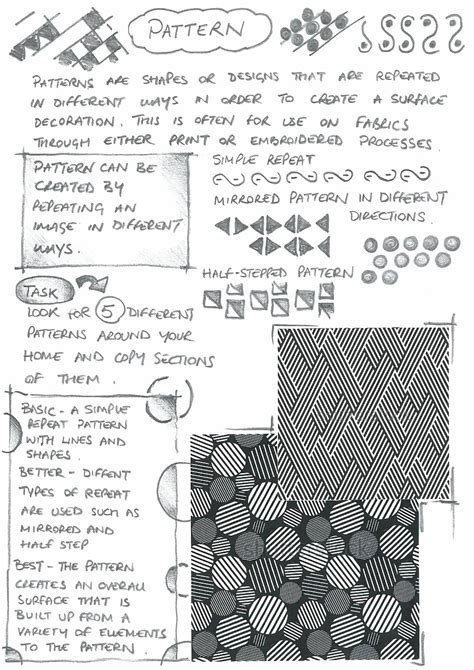 PATTERN
PATTERNS ARE SHAPES OR DESIGNS THAT ARE REPEATED
IN DIFFERENT WAYS IN ORDER TO CREATE A SURFACE
DECORATION. THIS IS OFTEN FOR USE ON FABRICS
THROUGH EITHER PRINT OR EMBROIDERED PROCESSES.
PATTERN CAN BE
CREATED BY
REPEATING AN
IMAGE IN DIFFERENT
WAYS.
SIMPLE REPEAT
MIRRORED PATTERN IN DIFFERENT
DIRECTIONS.
HALF-STEPPED PATTERN
TASK
LOOK FOR 5 DIFFERENT
PATTERNS AROUND YOUR
HOME AND COPY SECTIONS
OF THEM.
BASIC - A SIMPLE
REPEAT PATTERN
WITH LINES AND
SHAPES.
BETTER - DIFFENT
TYPES OF REPEAT
ARE USED SUCH AS
MIRRORED AND
HALF STEP
BEST - THE PATTERN
CREATES AN OVERALL
SURFACE THAT IS
BUILT UP FROM A
VARIETY OF ELEMENTS
TO THE PATTERN.